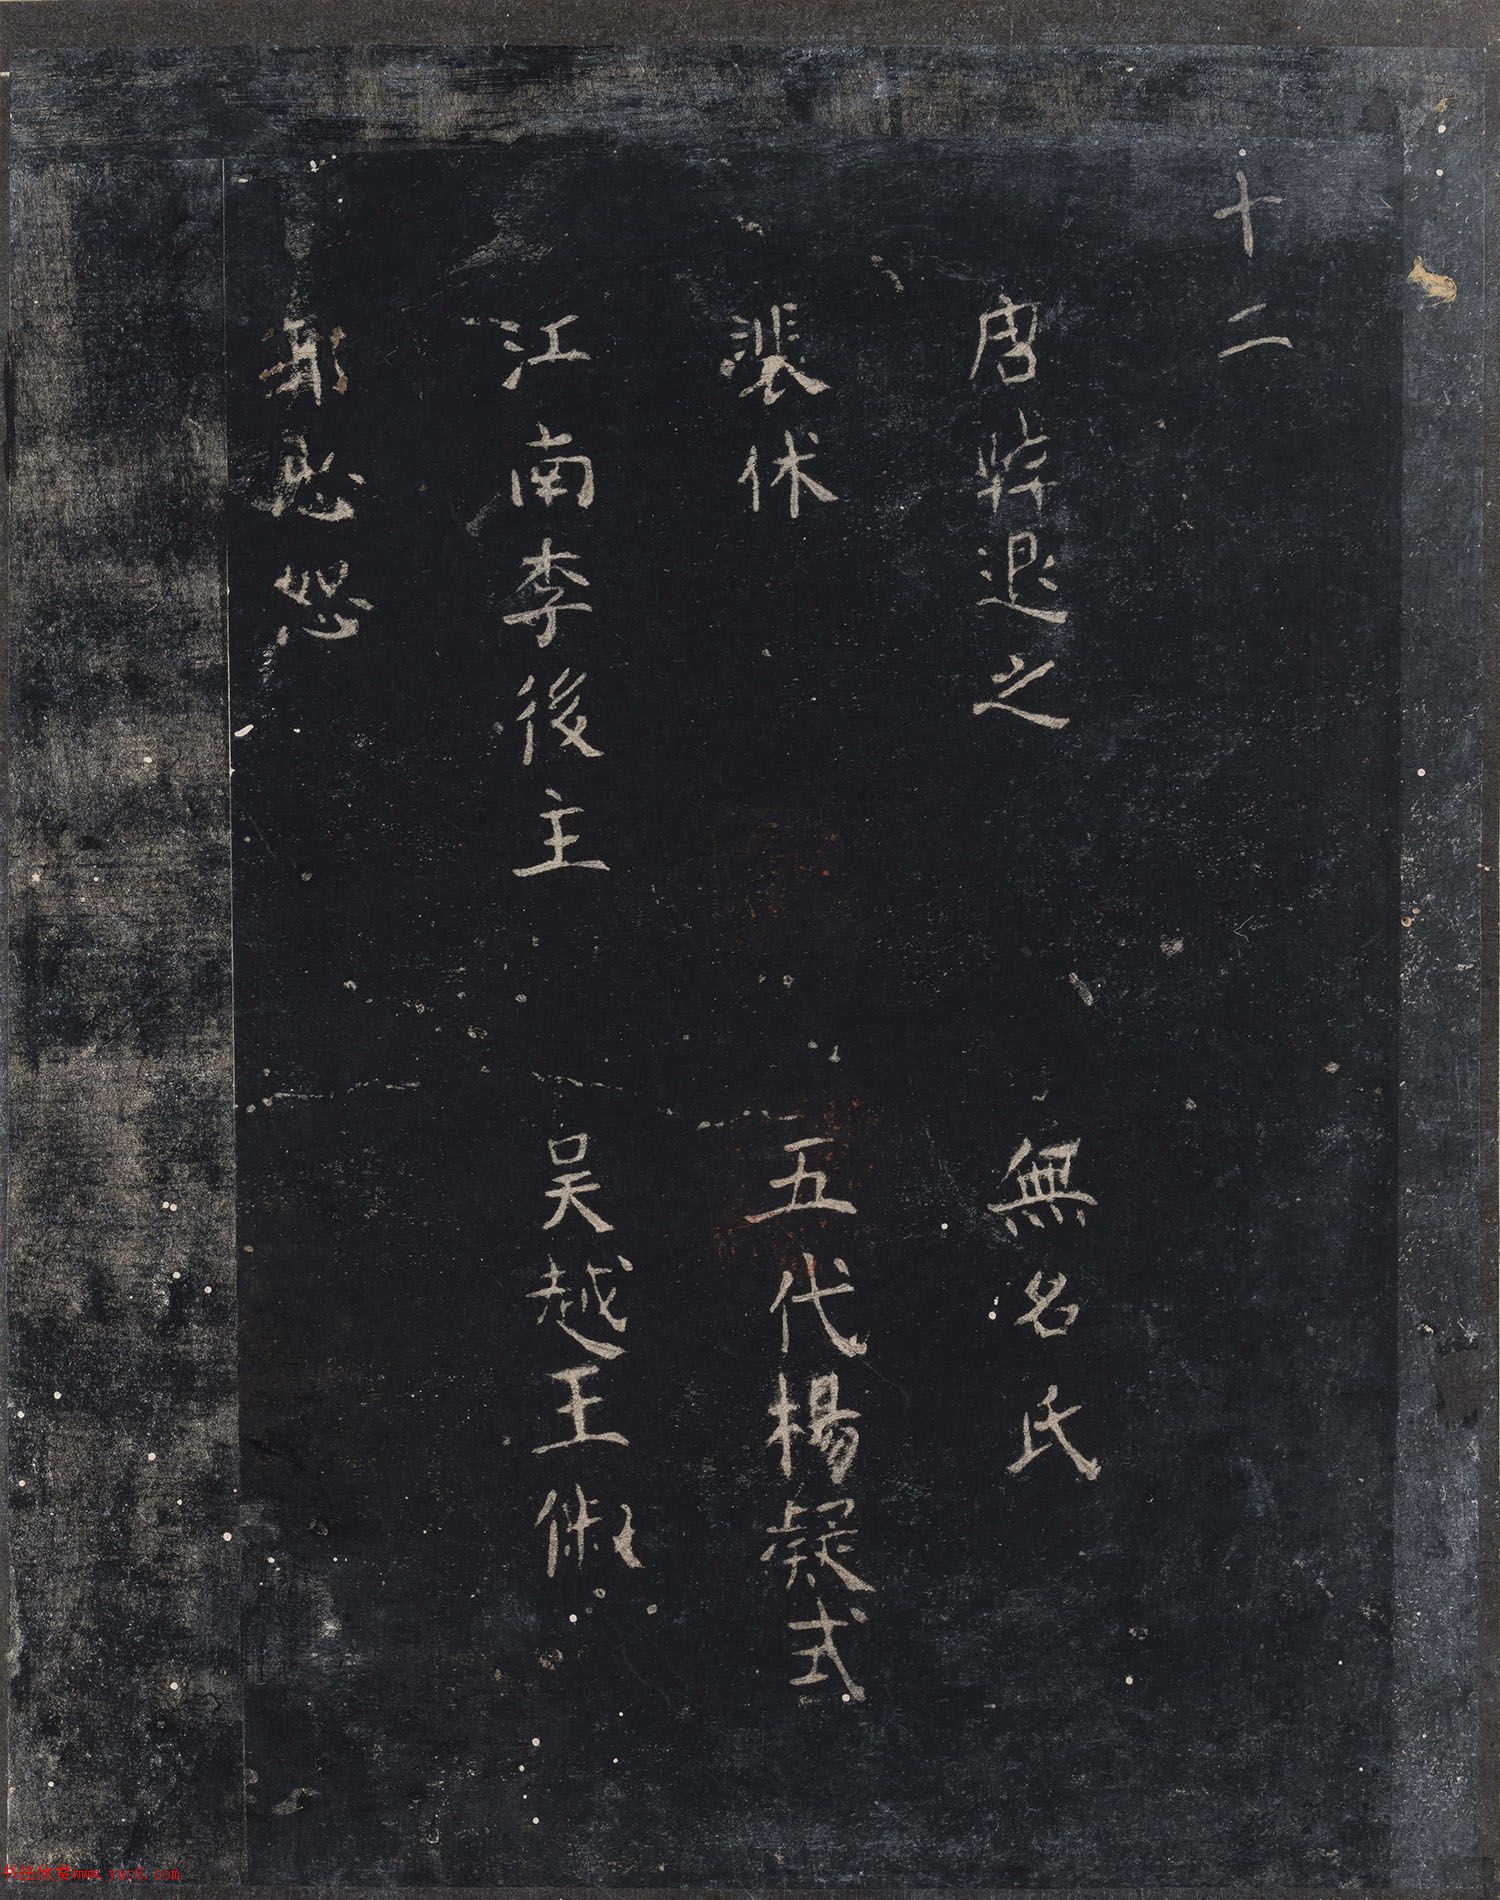 十二
唐韓退之 無名氏
裴休 五代楊凝式
江南李後主 吳越王俶
郭忠恕
www.yac8.com